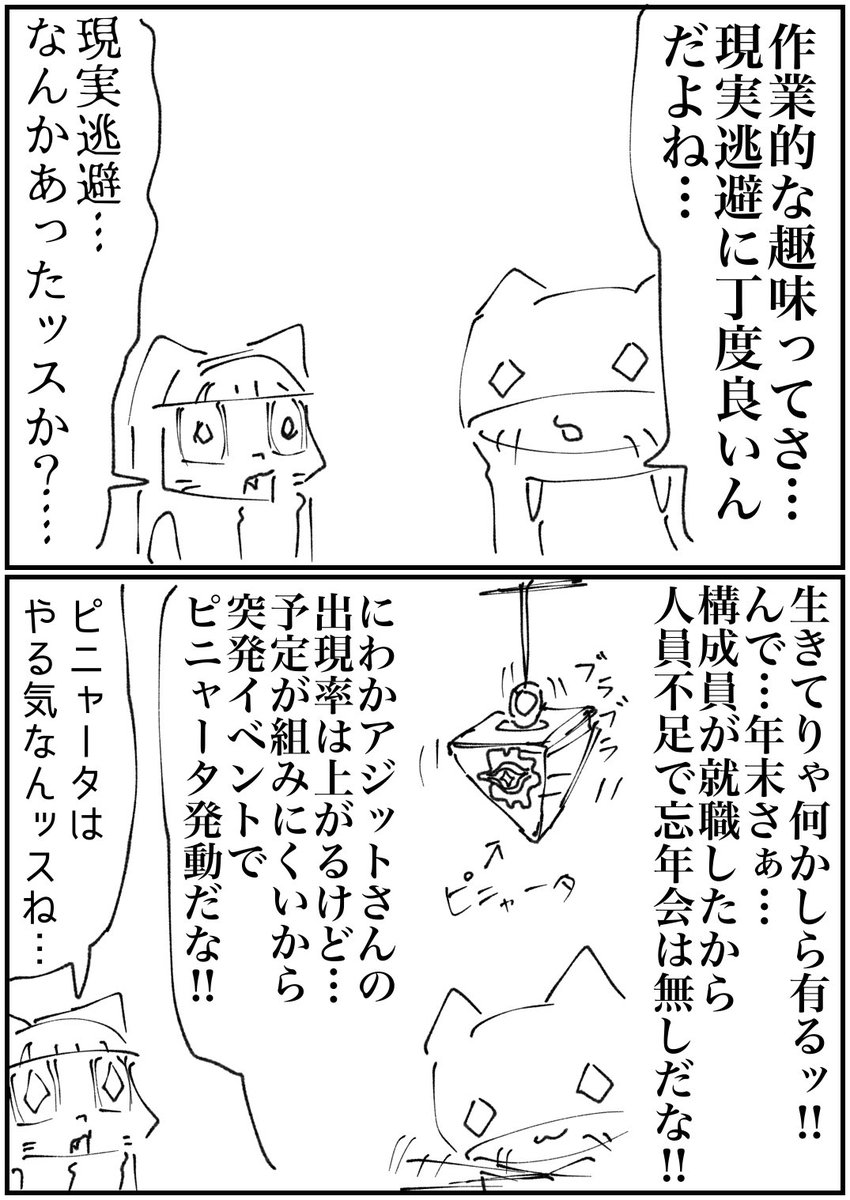 作業的な趣味ってさ…
現実逃避に丁度良いん
だよね…
現実逃避…
なんかあったッスか？……
生きてりゃ何かしら有るッ!!
んで…年末さぁ…
構成員が就職したから
人員不足で忘年会は無しだな!!
ブラ
ブラ
ブラ
ピニャータ
にわかアジットさんの
出現率は上がるけど…
予定が組みにくいから
突発イベントで
ピニャータ発動だな!!
ピニャータは
やる気なんッスね…